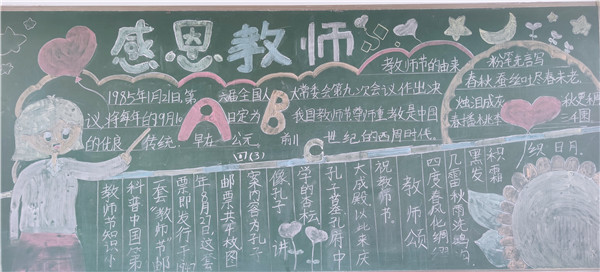 感恩教师
教师节的由来
1985年1月21日,第六届全国人大常委会第九次会议作出决
议,将每年的9月10日定为我国教师节尊师重教是中国
的优良传统,早在公元前11世纪的西周时代
A B C
四(3)
粉笔无言写
春秋春蚕丝尽春未老
烛泪成灰秋更稠
春播桃李三
日月
积霜
黑发
几雷秋雨洗鸣
四度春风化绸
教师颂
祝教师节
大成殿以此来庆
孔子墓孔府中
学的杏坛
像孔子讲
案内容为孔子
邮票共平枚图
年8月7日,这套
票即发行于
套“教师”邮
科普中国第
教师节知识小